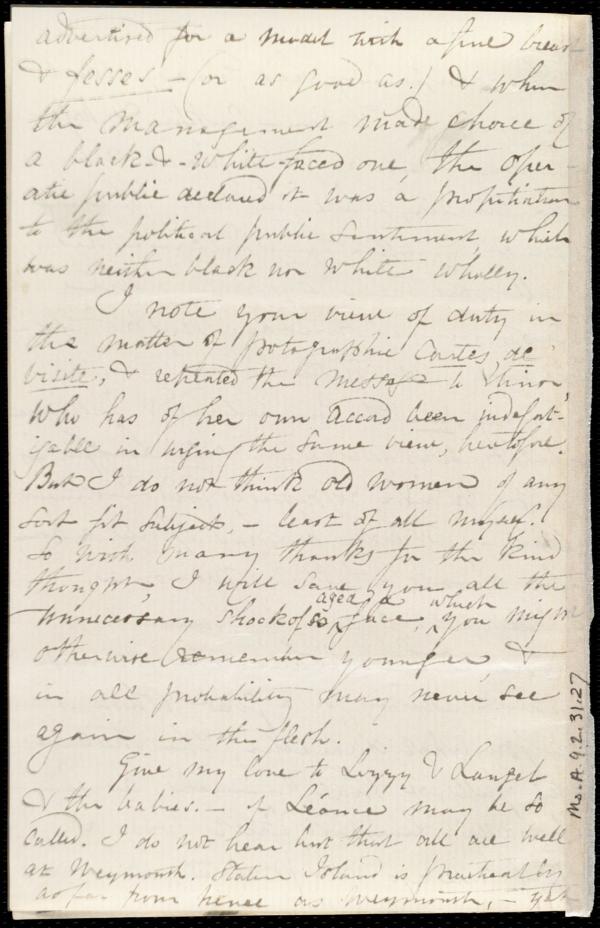 advertised for a model with a fine breast
& fesses - (or as good as.) & when
the management made choice of
a black-&-white-faced one, the oper-
atic public declared it was a propitiation
to the political public sentiment, which
was neither black nor white wholly.
I note your view of duty in
the matter of photographic Cartes de
visite, & repeated the message to
who has of her own accord been indefat-
igable in urging the same view, heretofore.
But I do not think old women of any
sort fit subjects, - least of all myself.
So with many thanks for the kind
thought, I will save you all the
unnecessary shock of so aged a face, which you might
otherwise remember younger, &
in all probability may never see
again in the flesh.
Give my love to Lizzy & Langel
& the babies. - if Léonce may be so
called. I do not hear but that all are well
at Weymouth. Staten Island is practically
as far from hence as Weymouth, - yet
Ms. A. 9. 2. 31. 27